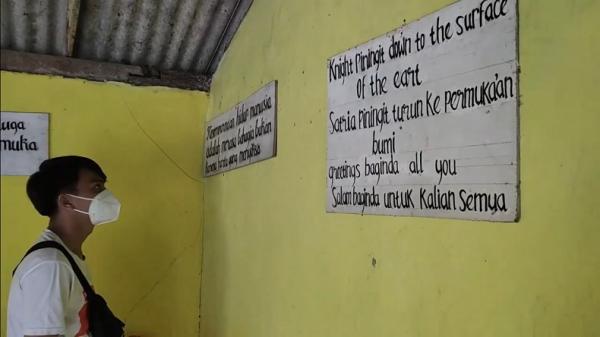 uga
muka
Kemenangan hidup manusia
adalah merasa bahagia bukan
karena harta yang
Knight Piningit down to the surface
of the eart
Satria Piningit turun Ke Permuka'an
bumi
greetings baginda all you
Salam baginda untuk Kalian Semua